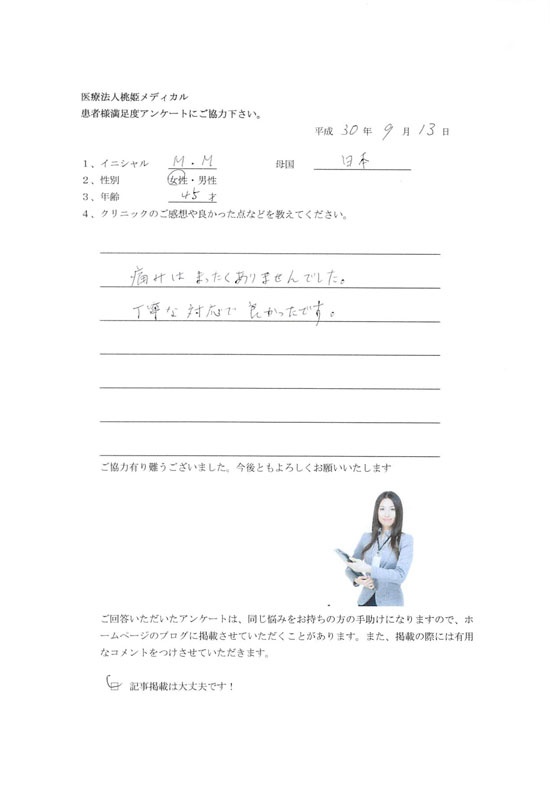 医療法人桃姫メディカル
患者様満足度アンケートにご協力下さい。
平成 30 年 9 月 13 日
1、イニシャル M・M 母国 日本
2、性別 女性・男性
3、年齢 45 才
4、クリニックのご感想や良かった点などを教えてください。
痛みは まったくありませんでした。
丁寧な 対応で 良かったです。
ご協力有り難うございました。今後ともよろしくお願いいたします
ご回答いただいたアンケートは、同じ悩みをお持ちの方の手助けになりますので、ホ
ームページのブログに掲載させていただくことがあります。また、掲載の際には有用
なコメントをつけさせていただきます。
記事掲載は大丈夫です！